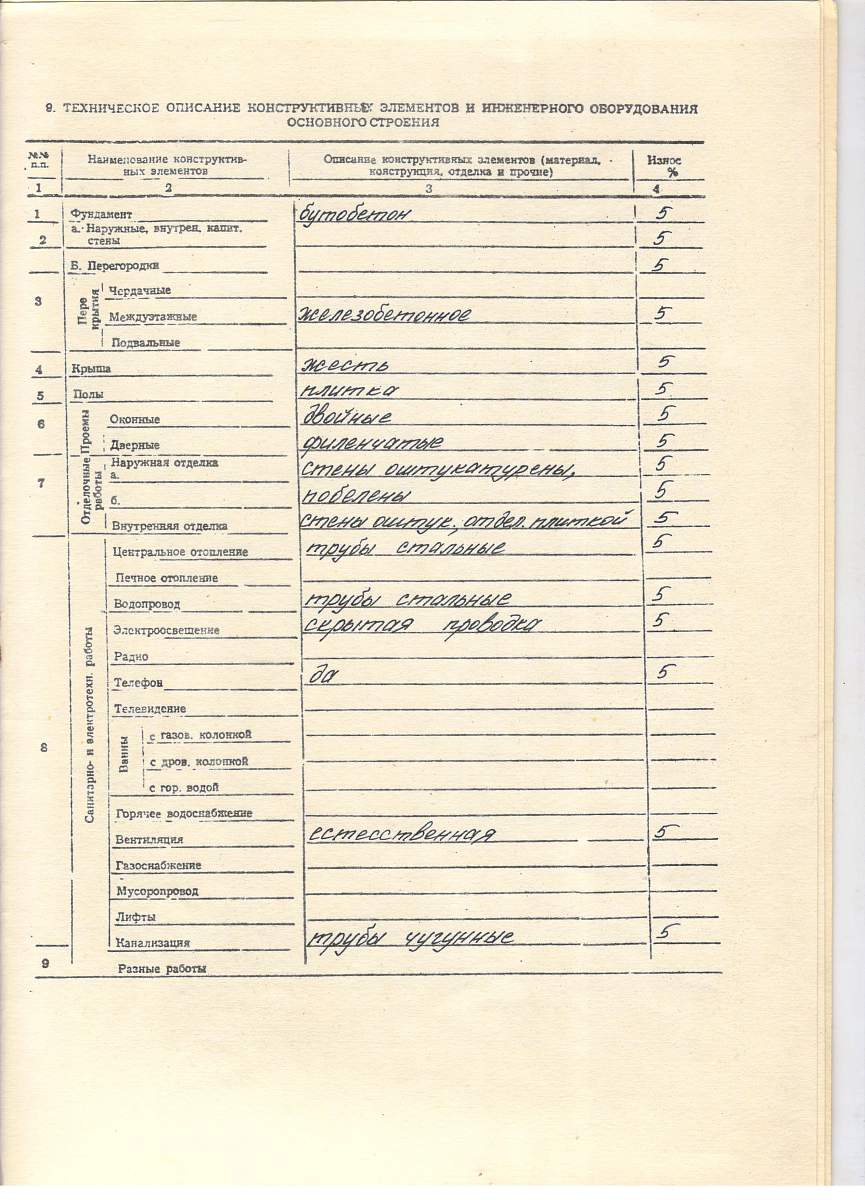 9. ТЕХНИЧЕСКОЕ ОПИСАНИЕ КОНСТРУКТИВНЫХ ЭЛЕМЕНТОВ И ИНЖЕНЕРНОГО ОБОРУДОВАНИЯ
ОСНОВНОГО СТРОЕНИЯ
№№ п.п. Наименование конструктив-ных элементов Описание конструктивных элементов (материал, конструкция, отделка и прочие) Износ %
1 2 3 4
1 Фундамент бутобетон 5
2 а. Наружные, внутрен. капит. стены 5
Б. Перегородки 5
3 Пере крытия Чердачные
Междуэтажные железобетонное 5
Подвальные
4 Крыша жесть 5
5 Полы плитка 5
6 Проемы Оконные двойные 5
Дверные филенчатые 5
7 Отделочные работы Наружная отделка
а. стены оштукатурены, 5
б. побелены 5
Внутренняя отделка стены оштук., отдел. плиткой 5
8 Санитарно- и электротехн. работы Центральное отопление трубы стальные 5
Печное отопление
Водопровод трубы стальные 5
Электроосвещение скрытая проводка 5
Радио
Телефон да 5
Телевидение
Ванны с газов. колонкой
с дров. колонкой
с гор. водой
Горячее водоснабжение
Вентиляция естесственная 5
Газоснабжение
Мусоропровод
Лифты
Канализация трубы чугунные 5
9 Разные работы